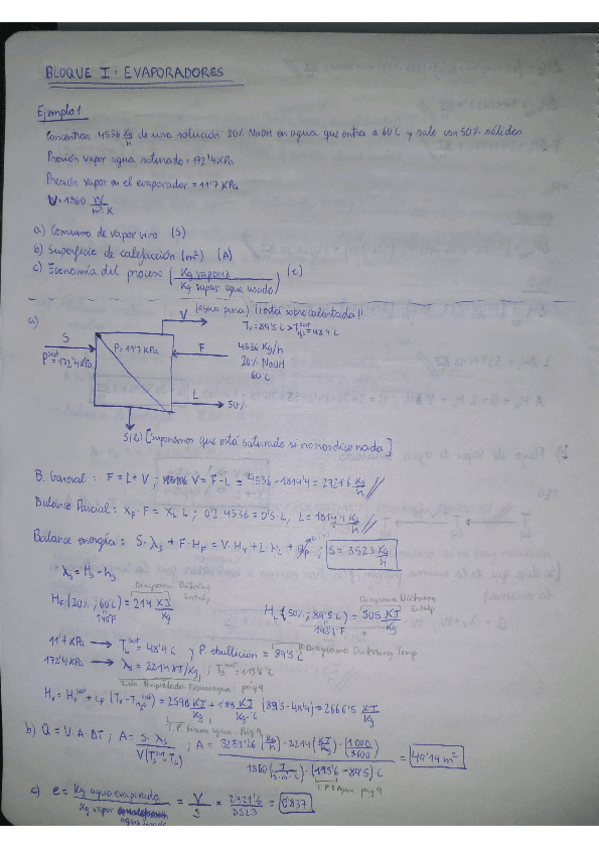 BLOQUE I: EVAPORADORES
Ejemplo 1
Concentrar 4536 Kg/h de una solución 20% NaOH en agua que entra a 60ºC y sale con 50% sólidos
Presión vapor agua saturado = 172'4 KPa
Presión vapor en el evaporador = 11'7 KPa
U = 1560 W/m²·K
a) Consumo de vapor vivo (S)
b) Superficie de calefacción (m²) (A)
c) Economía del proceso (Kg vapor / Kg vapor agua usado) (e)
a)
V (agua pura) ¡¡está sobrecalentada!!
Tv = 89'5ºC > T sat = 48'4ºC
S
P sat = 172'4 KPa
P1 = 11'7 KPa
F
4536 Kg/h
20% NaOH
60ºC
L
50%
S(L) [Suponemos que está saturada si no nos dice nada]
B. General: F = L + V; V = F - L = 4536 - 1814'4 = 2721'6 Kg/h
Balance Parcial: xF · F = xL L; 0'2 · 4536 = 0'5 · L; L = 1814'4 Kg/h
Balance energía: S·λs + F·HF = V·Hv + L·HL + ; S = 3523 Kg/h
λs = Hs - hs
Diagrama Dühring Entalp
HF (20%; 60ºC) = 214 KJ/Kg
140ºF
Diagrama Dühring Entalp
HL (50%; 89'5ºC) = 505 KJ/Kg
193'1ºF
11'7 KPa → T sat = 48'4ºC y P. ebullición = 89'5ºC Diagrama Dühring Temp
172'4 KPa → λs = 2214 KJ/Kg; Ts sat = 115'6ºC
Tabla Propiedades Fisicas agua: pag 9
Hv = Hv sat + cp (Tv - T sat) = 2590 KJ/Kg + 1'88 KJ/Kg·ºC (89'5 - 48'4) = 2666'5 KJ/Kg
T.P. Fisicas agua pag 9
b) Q = U·A·ΔT; A = S·λs / U(Ts sat - TL); A = (Kg/h) · 2214 (KJ/Kg) · (1000/3600) / 1560 (J/s·m²·ºC) · (115'6 - 89'5)ºC = 49'14 m²
pag 9
c) e = Kg agua evaporada / Kg vapor = V/S = 2721'6/3523 = 0'837